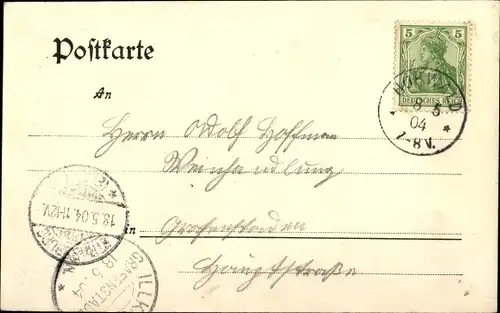 Postkarte
5 5
DEUTSCHES REICH
An
8 5
04
7-8V.
Herrn Adolf Hoffmann
Weinhandlung
18.5.04.11-12V.
in Grafenstaden
Hauptstraße
ILLK
GRAFENSTAD
18 5
04